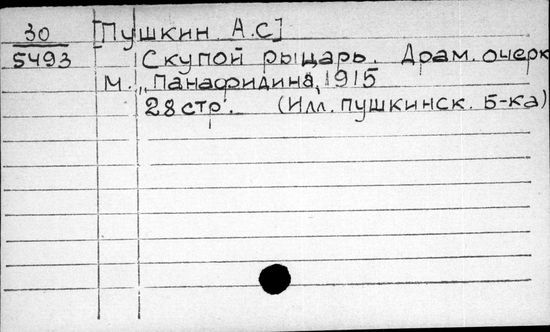 30 [Пушкин А.С]
5493 Скупой рыцарь. Драм. очерк
М. „Панафидина, 1915
28 стр. (Илл. пушкинск. Б-ка)